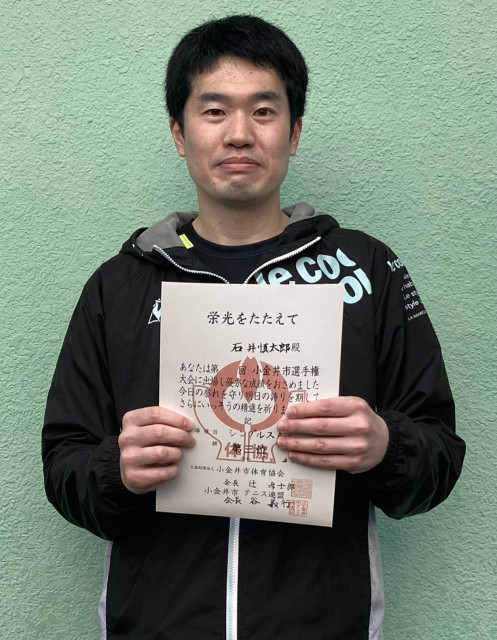 le coq
栄光をたたえて
石井慎太郎殿
あなたは第 回 小金井市選手権
大会に出場し優秀な成績をおさめました
今日の誉れを守り明日の誇りを期して
さらにいっそうの精進を祈りま
記
種目 シングルス
第三位
公益財団法人 小金井市体育協会
会長 辻 孝士郎
小金井市 テニス連盟
会長 谷 義行